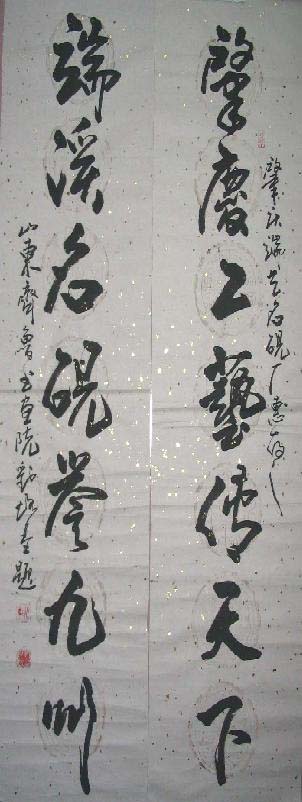 肇庆端艺名硯厂惠存
肇慶工藝傳天下
端溪名硯譽九州
山東齊魯书画院 題